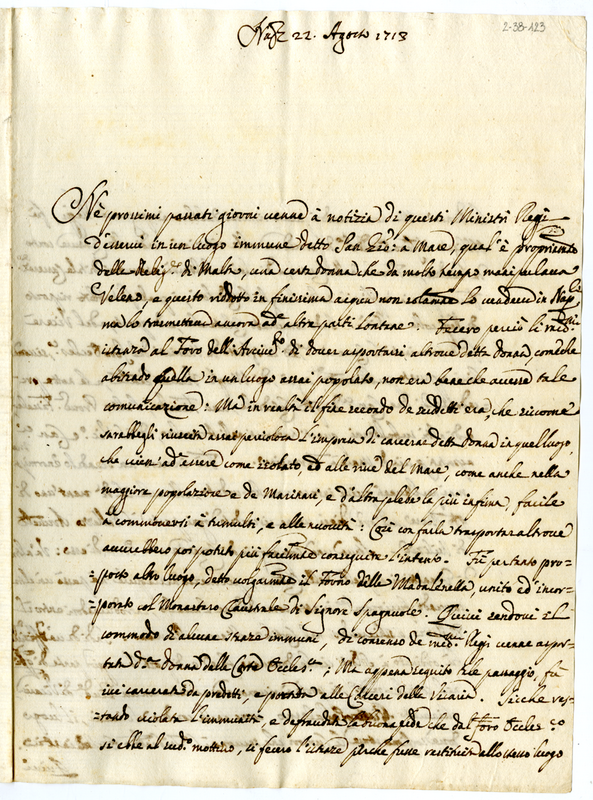 2-38-123
Nap. 22. Agosto 1713
Nè prossimi passati giorni venne à notizia di questi Ministri Regij
d'esservi in un luogo immune detto San Gio: à Mare, qual'è proprietà
della Relig.ne di Malta, una certa donna che da molto tempo manipulava
Veleno, e questo ridotto in finissima acqua non solamte lo vendeva in Nap.li
ma lo trasmetteva ancora ad altre parti lontane. Fecero perciò li med.mi
istanza al Foro dell'Arcives.to di dover asportarsi altrove detta donna, com'che
abitando quella in un luogo assai popolato, non era bene che avesse tale
comunicazione: Mà in realtà il fine secondo de suddetti era, che siccome
sarebbegli riuscita assai pericolosa l'impresa di carcerar detta donna in quel luogo,
che vien' ad essere come isolato, ed alle rive del Mare, come anche nella
maggiore popolazione e de Marinari, e d'altra plebe la più infima, facile
à commoversi à tumulti, e alle novità: Così con farla trasportar altrove
avrebbero poi potuto più facilmte conseguire l'intento. Fù pertanto pro-
-posto altro luogo, detto volgarmte il Forno della Madalenella, unito ed incor-
-porato col Monastero Claustrale di Signore Spagnuole. Quivi essendovi il
commodo di alcune stanze immuni, di consenso de med.mi Regij venne aspor-
tata d.a donna dalla Corte Eccles.ca; Mà appena seguito tale passaggio, fù
ivi carcerata da predetti, e portata alle Carceri della Vicaria. Sicche res-
-tando violata l'immunità, e defraudata la buona fede che dal Foro Eccles.co
si ebbe al sud.o mottivo, si fecero l'istanze perche fusse restituita allo stesso luogo